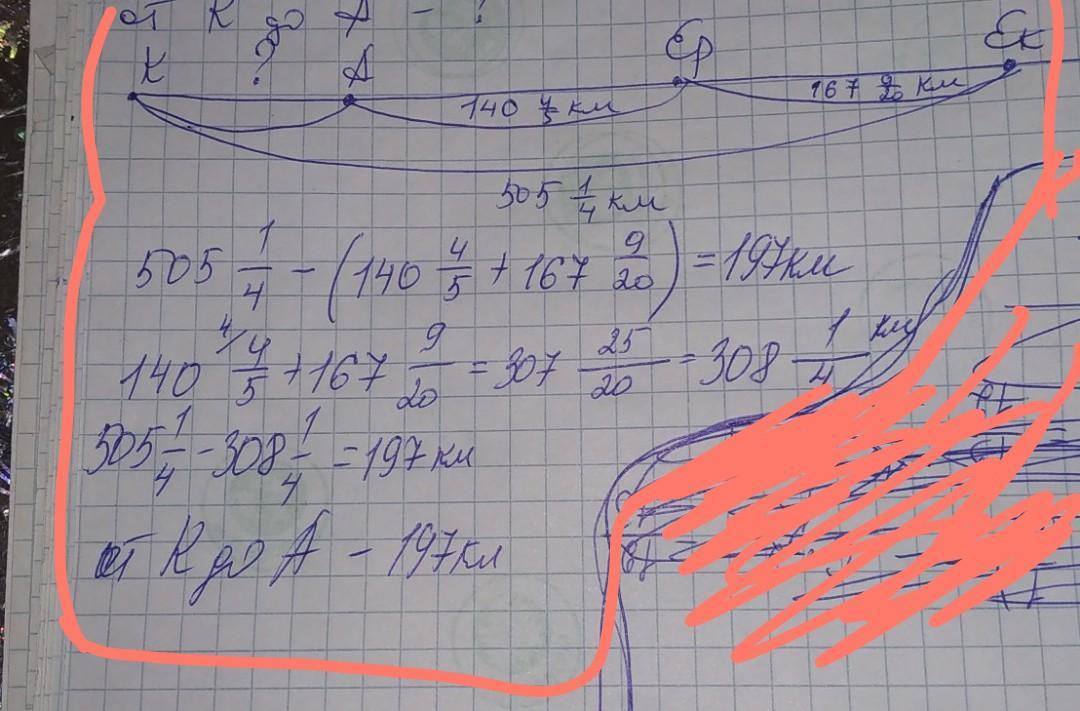 от К до А - ?
К ? А Ер Ек
140 4/5 км 167 9/20 км
505 1/4 км
505 1/4 - (140 4/5 + 167 9/20) = 197км
140 4/ 4/5 + 167 9/20 = 307 25/20 = 308 1/4 км
505 1/4 - 308 1/4 = 197 км
от К до А - 197км